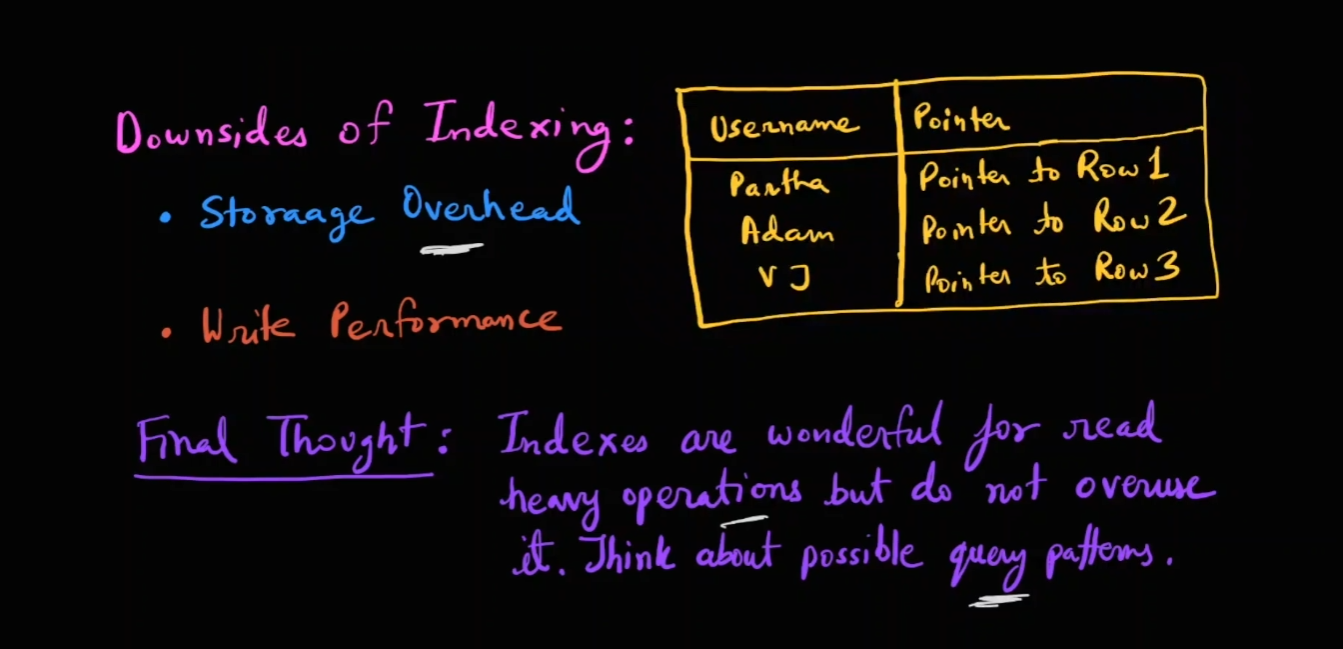 Downsides of Indexing:
• Storaage Overhead
• Write Performance
Username Pointer
Partha Pointer to Row 1
Adam Pointer to Row 2
VJ Pointer to Row 3
Final Thought: Indexes are wonderful for read
heavy operations but do not overuse
it. Think about possible query patterns.